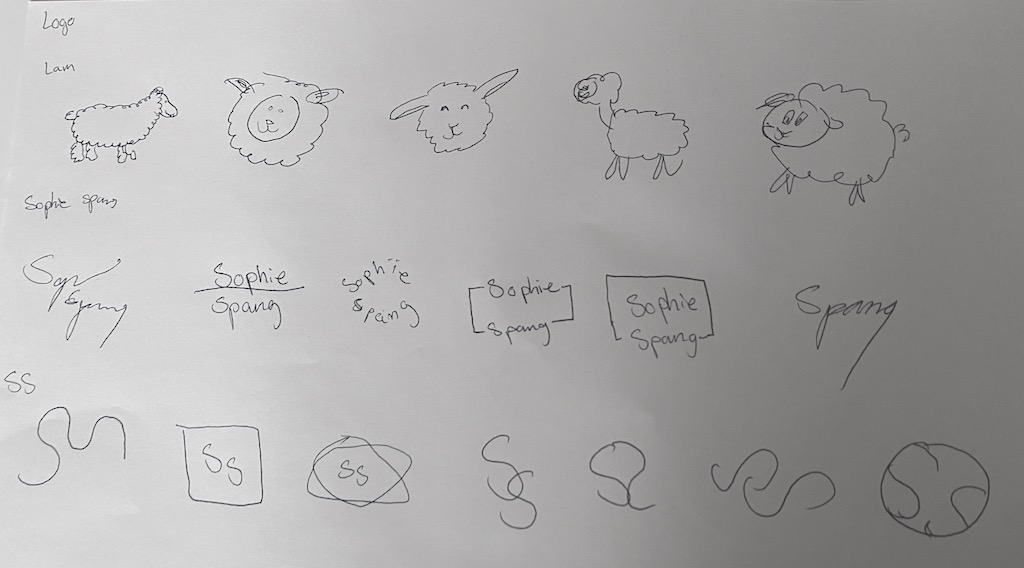 Logo
Lam
Sophie Spang
Spang
Sophie
Spang
Sophie
Spang
Sophie
Spang
Sophie
Spang
Spang
SS
SS
SS